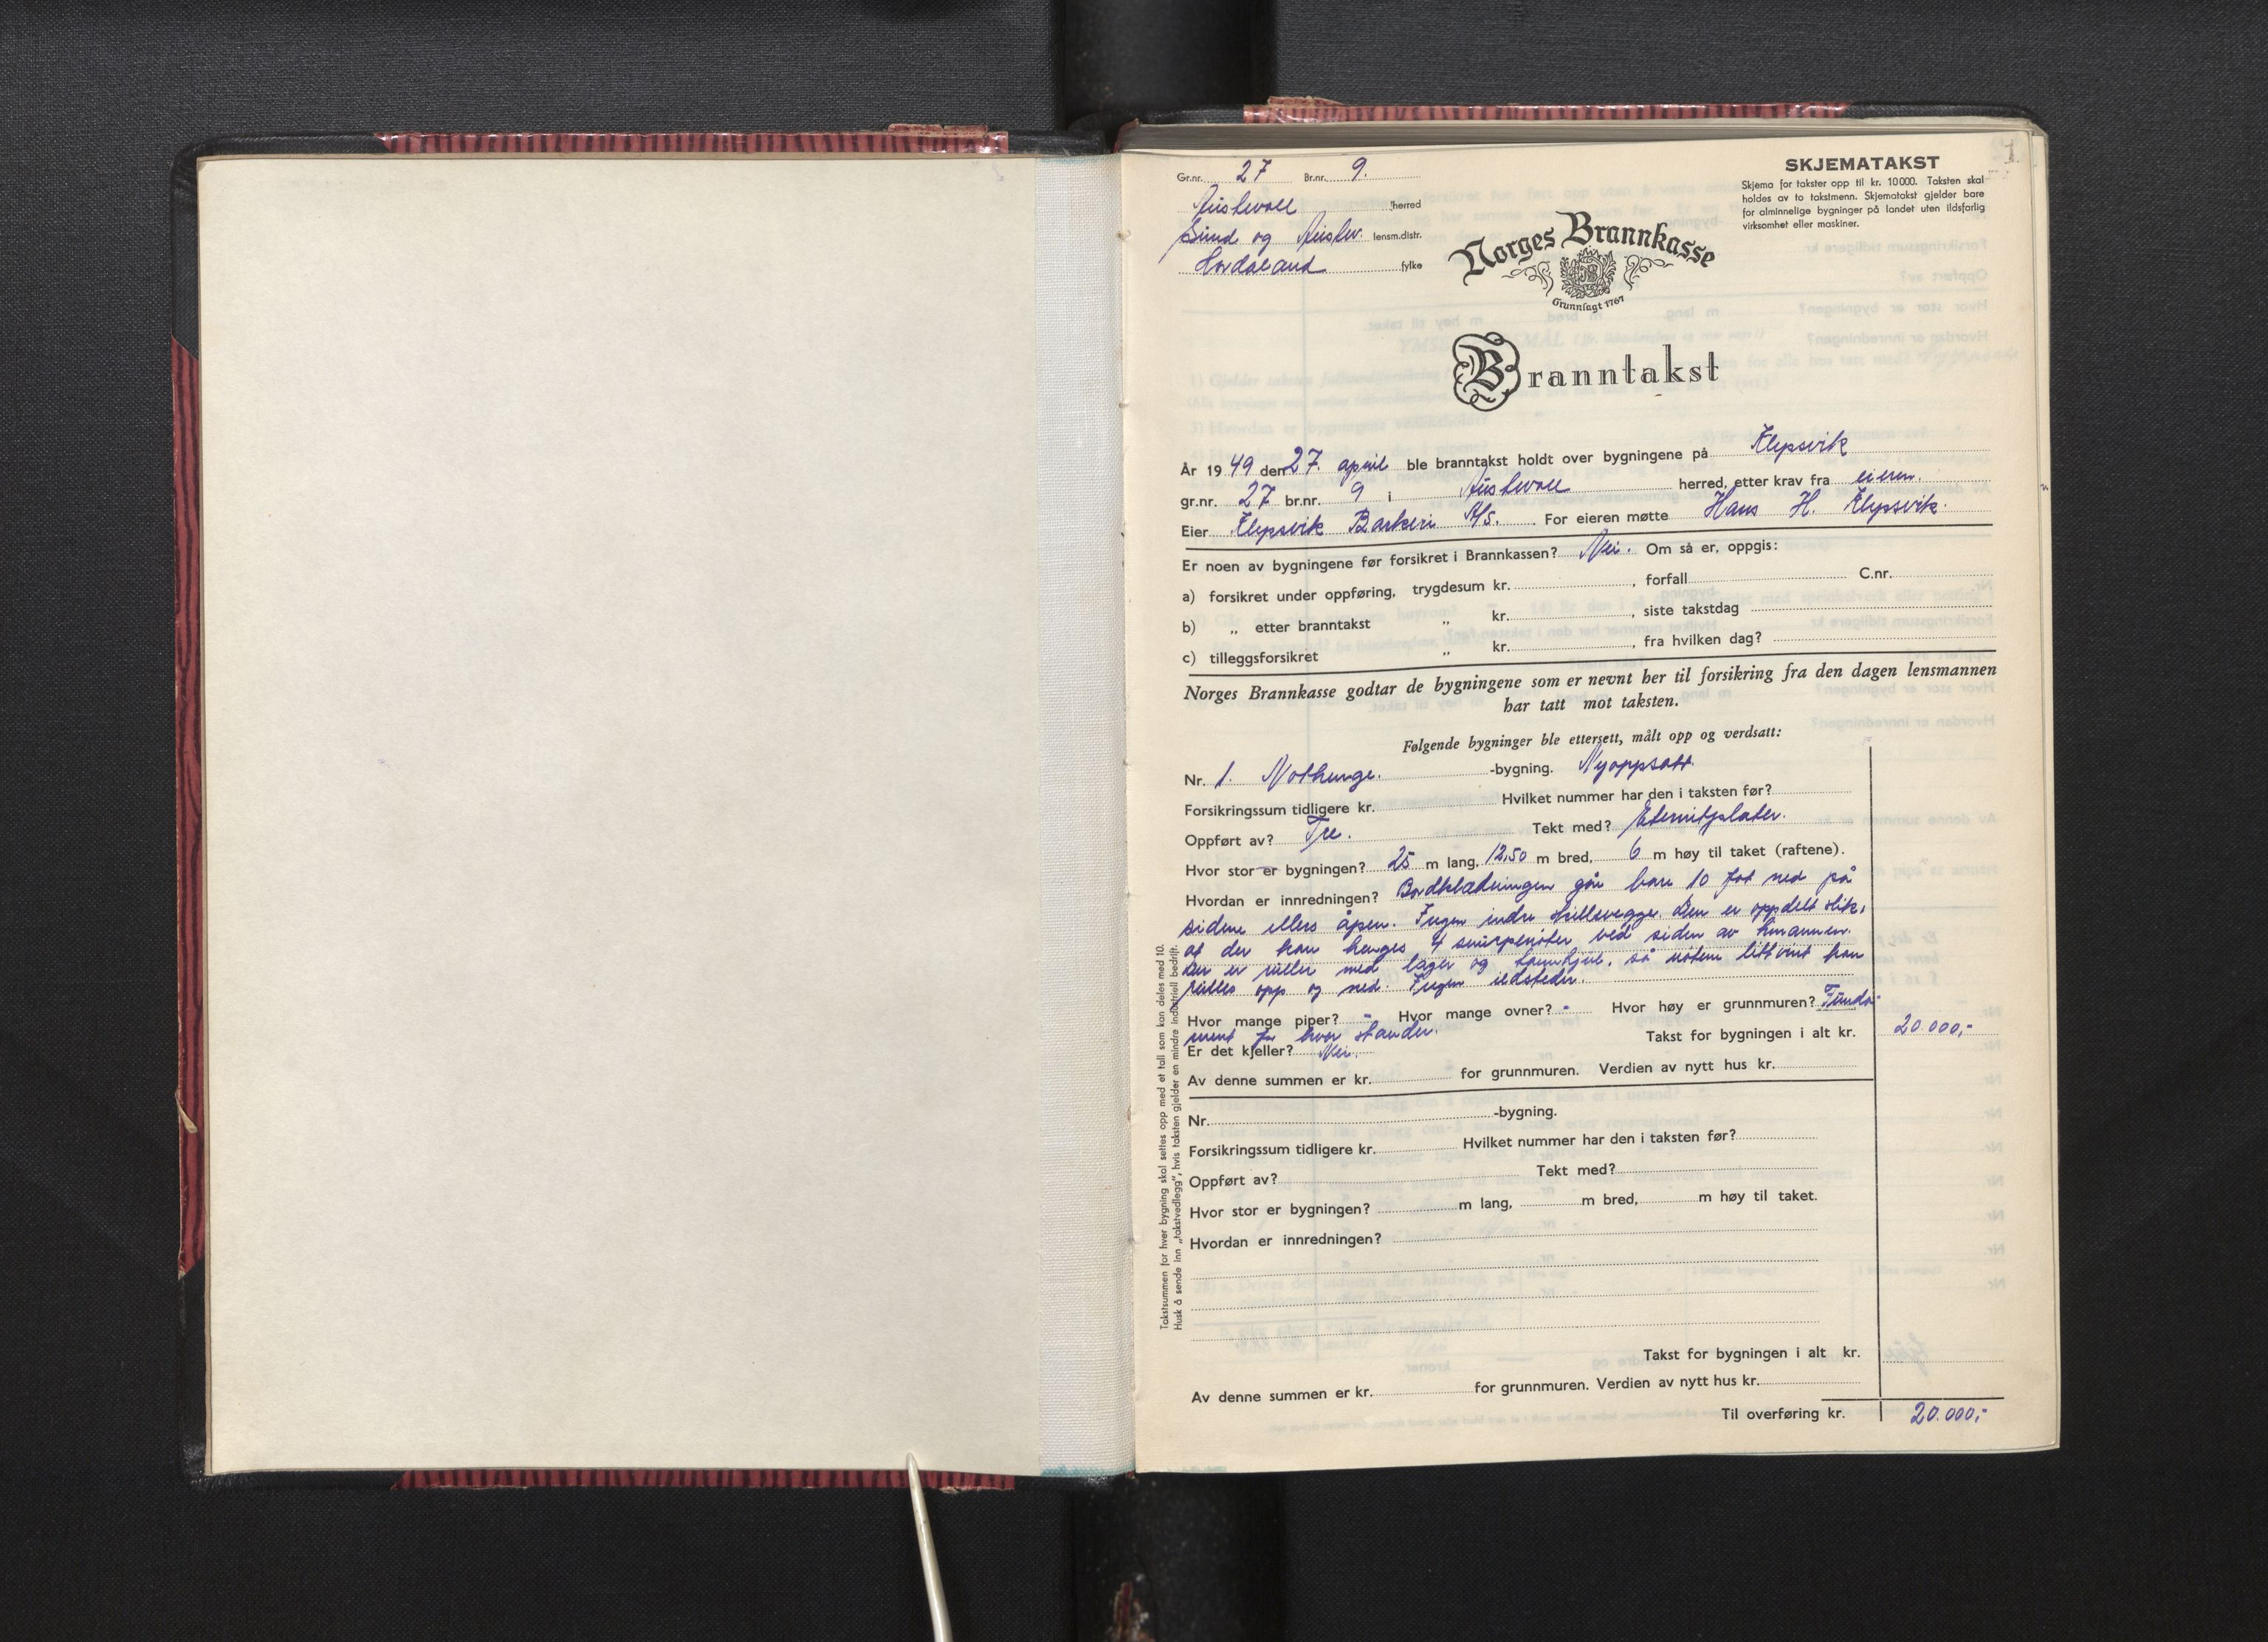 1
Gr.nr. 27 Br.nr. 9.
Austevoll herred
Sund og Austev. lensm.distr.
Hordaland fylke
SKJEMATAKST
Skjema for takster opp til kr. 10000. Taksten skal
holdes av to takstmenn. Skjematakst gjelder bare
for alminnelige bygninger på landet uten ildsfarlig
virksomhet eller maskiner.
Norges Brannkasse
Grunnlagt 1767
Branntakst
År 1949 den 27. april ble branntakst holdt over bygningene på Klepsvik
gr.nr. 27 br.nr. 9 i Austevoll herred, etter krav fra eieren.
Eier Klepsvik Barkeri A/S. For eieren møtte Hans H. Klepsvik.
Er noen av bygningene før forsikret i Brannkassen? Nei. Om så er, oppgis:
a) forsikret under oppføring, trygdesum kr. , forfall C.nr.
b) „ etter branntakst „ kr. , siste takstdag
c) tilleggsforsikret „ kr. , fra hvilken dag?
Norges Brannkasse godtar de bygningene som er nevnt her til forsikring fra den dagen lensmannen
har tatt mot taksten.
Følgende bygninger ble ettersett, målt opp og verdsatt:
Nr. 1. Nothenge. -bygning. Nyoppsatt.
Forsikringssum tidligere kr. Hvilket nummer har den i taksten før?
Oppført av? Tre. Tekt med? Eternitplater.
Hvor stor er bygningen? 25 m lang, 12,50 m bred, 6 m høy til taket (raftene).
Hvordan er innredningen? Bordklædningen går bare 10 fot ned på
sidene ellers åpen. Ingen indre skillevegge. Den er oppdelt slik,
at der kan henges 4 snurpenøter ved siden av hinannen.
Der er ruller med lager og så nøtene littvint kan
rulles opp og ned. Ingen ildsteder.
Hvor mange piper? - Hvor mange ovner? - Hvor høy er grunnmuren? Funda-
ment for hver stander.
Takst for bygningen i alt kr. 20.000,-
Er det kjeller? Nei.
Av denne summen er kr. for grunnmuren. Verdien av nytt hus kr.
Nr. -bygning.
Forsikringssum tidligere kr. Hvilket nummer har den i taksten før?
Oppført av? Tekt med?
Hvor stor er bygningen? m lang, m bred, m høy til taket.
Hvordan er innredningen?
Takst for bygningen i alt kr.
Av denne summen er kr. for grunnmuren. Verdien av nytt hus kr.
Til overføring kr. 20.000,-
Takstsummen for hver bygning skal settes opp med et tall som kan deles med 10.
Husk å sende inn „takstvedlegg“, hvis taksten gjelder en mindre industriell bedrift.